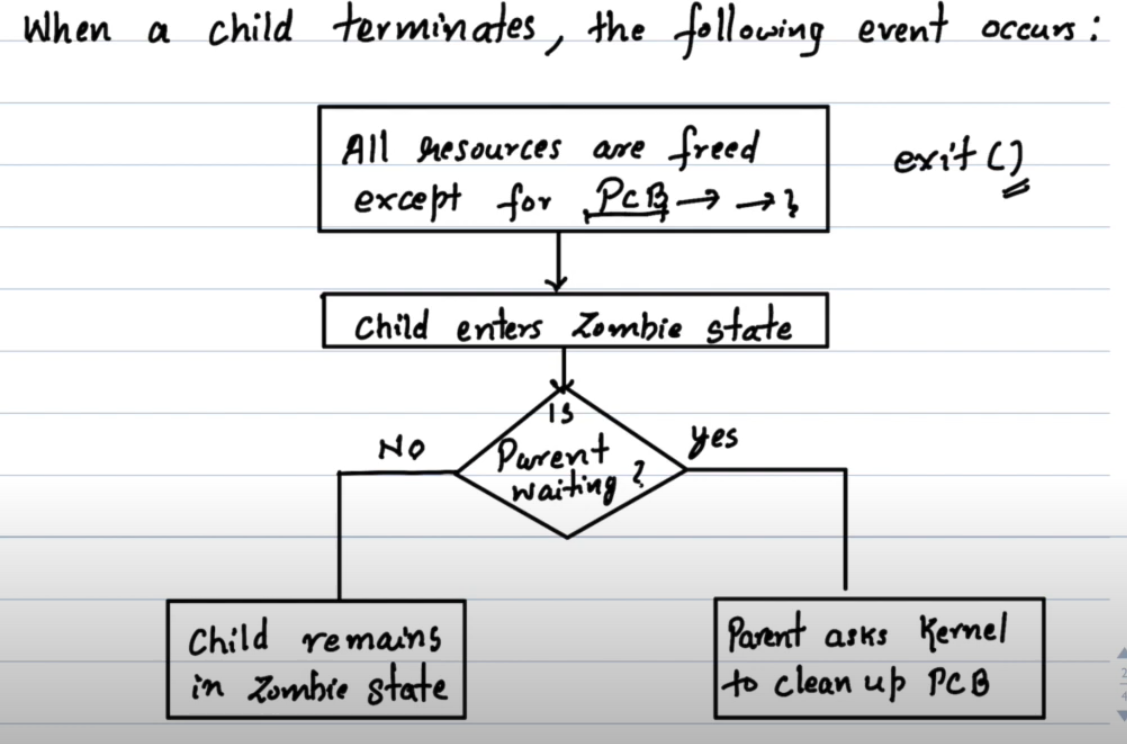 When a child terminates, the following event occurs:
All resources are freed
except for PCB → → }
exit()
Child enters Zombie state
Is
Parent
waiting?
No
Yes
Child remains
in Zombie state
Parent asks Kernel
to clean up PCB